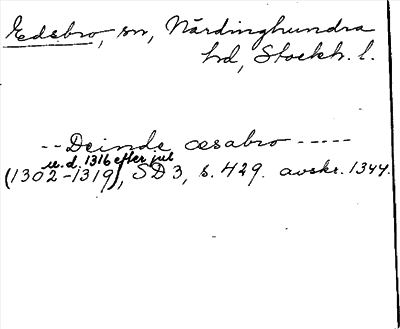 Edsbro, sn, Närdinghundra
hd, Stockh. l.
-- Deinde æsabro -----
u. d. 1316 efter jul
(1302-1319), SD 3, s. 429. avskr. 1344.